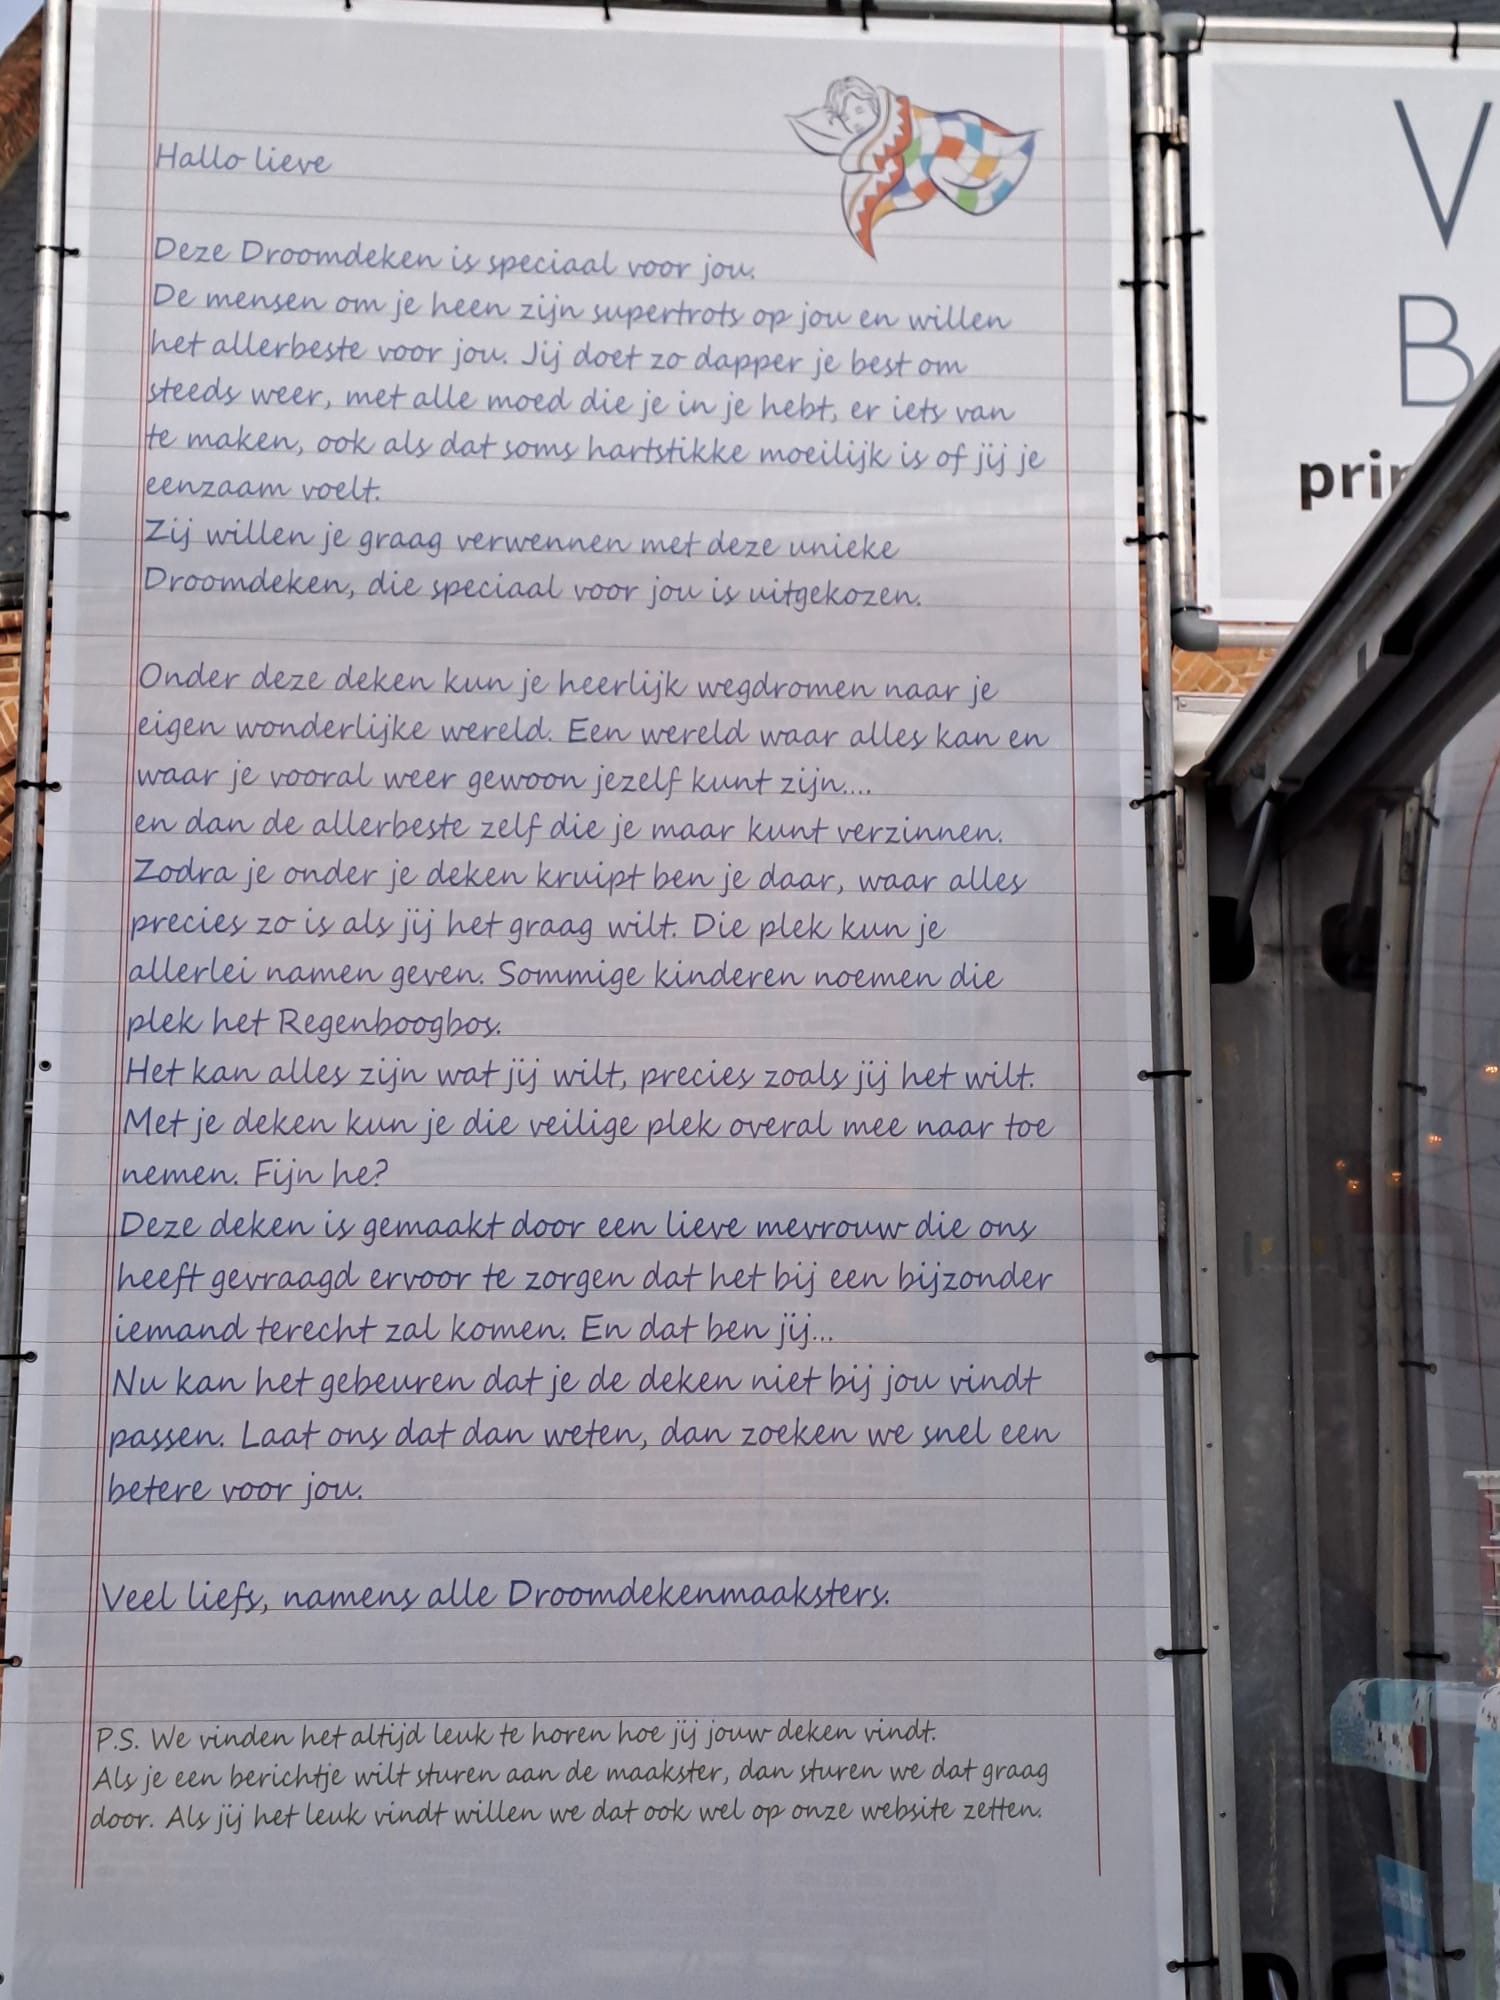 Hallo lieve
Deze Droomdeken is speciaal voor jou.
De mensen om je heen zijn supertrots op jou en willen
het allerbeste voor jou. Jij doet zo dapper je best om
steeds weer, met alle moed die je in je hebt, er iets van
te maken, ook als dat soms hartstikke moeilijk is of jij je
eenzaam voelt.
Zij willen je graag verwennen met deze unieke
Droomdeken, die speciaal voor jou is uitgekozen.
Onder deze deken kun je heerlijk wegdromen naar je
eigen wonderlijke wereld. Een wereld waar alles kan en
waar je vooral weer gewoon jezelf kunt zijn....
en dan de allerbeste zelf die je maar kunt verzinnen.
Zodra je onder je deken kruipt ben je daar, waar alles
precies zo is als jij het graag wilt. Die plek kun je
allerlei namen geven. Sommige kinderen noemen die
plek het Regenboogbos.
Het kan alles zijn wat jij wilt, precies zoals jij het wilt.
Met je deken kun je die veilige plek overal mee naar toe
nemen. Fijn he?
Deze deken is gemaakt door een lieve mevrouw die ons
heeft gevraagd ervoor te zorgen dat het bij een bijzonder
iemand terecht zal komen. En dat ben jij...
Nu kan het gebeuren dat je de deken niet bij jou vindt
passen. Laat ons dat dan weten, dan zoeken we snel een
betere voor jou.
Veel liefs, namens alle Droomdekenmaaksters.
P.S. We vinden het altijd leuk te horen hoe jij jouw deken vindt.
Als je een berichtje wilt sturen aan de maakster, dan sturen we dat graag
door. Als jij het leuk vindt willen we dat ook wel op onze website zetten.
V
B